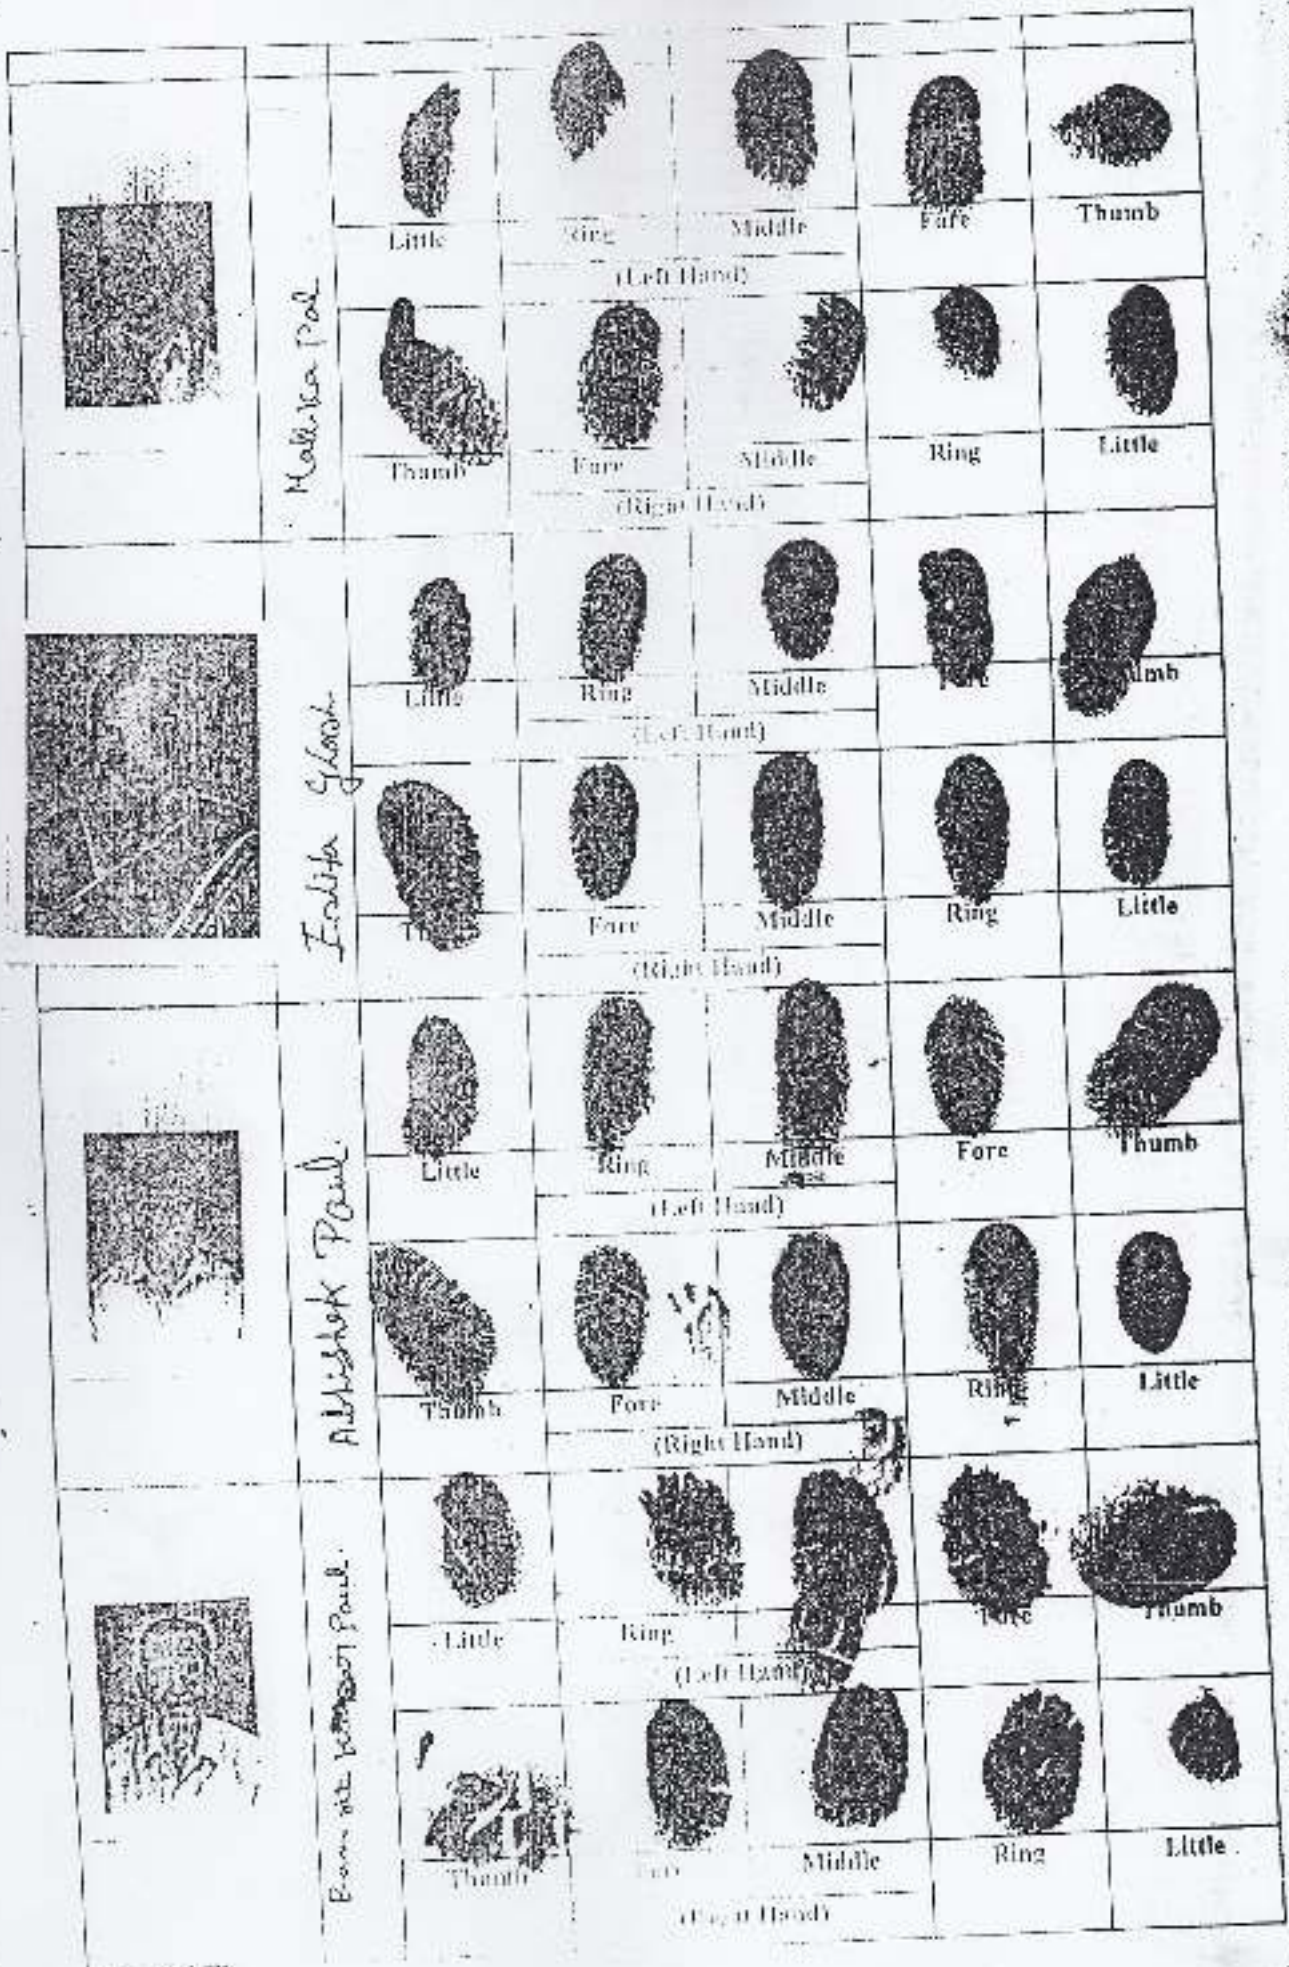 Mallika Pal
Little Ring Middle Fore Thumb
(Left Hand)
Thumb Fore Middle Ring Little
(Right Hand)
Ghosh
Little Ring Middle Fore umb
(Left Hand)
Th Fore Middle Ring Little
(Right Hand)
Abhishek Paul
Little Ring Middle Fore Thumb
(Left Hand)
Thumb Fore Middle Ring Little
(Right Hand)
Paul
Little Ring Fore Thumb
(Left Hand)
Thumb Middle Ring Little
(Right Hand)